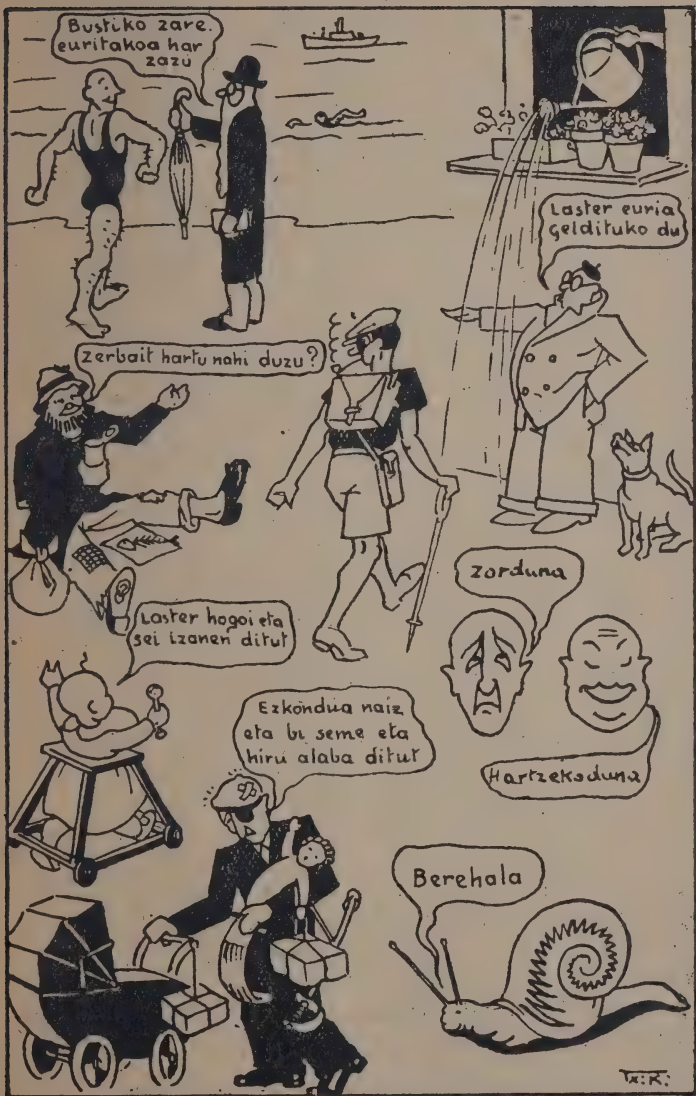 Bustiko zare.
euritakoa har
zazu
Laster euria
geldituko du
Zerbait hartu nahi duzu?
Zorduna
Laster hogoi eta
sei izanen ditut
Ezkondua naiz
eta bi seme eta
hiru alaba ditut
Hartzekoduna
Berehala
Tx.K.